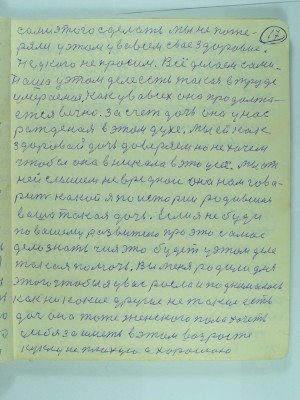 17
сами этого сделать мы не поте-
ряли у этом у вовсем свае здоровие.
Не у кого не просим. Всё делаем сами.
Наша у этом деле есть такая в труде
умераемая, как у во всех она продолжа-
ется вечно. За счет дочь она у нас
рожденая в этом духе. Мы ей как
здоровой доч доверяем но не хочем
чтобы она вникала в это усё. Мы от
ней слышем не вредной она нам гово-
рит какой я по истории родившая
ваша такая доч. Если я не буду
по вашему развитею про это самое
дело знать чия это будет у этом деле
такая помочь. Вы меня родили для
этого чтобы я у вас росла и поднималась
как ни какие другие не такие есть
доч она тоже женского пола хветь
у себя заиметь в этом возросте
куклу не плохую а хорошою